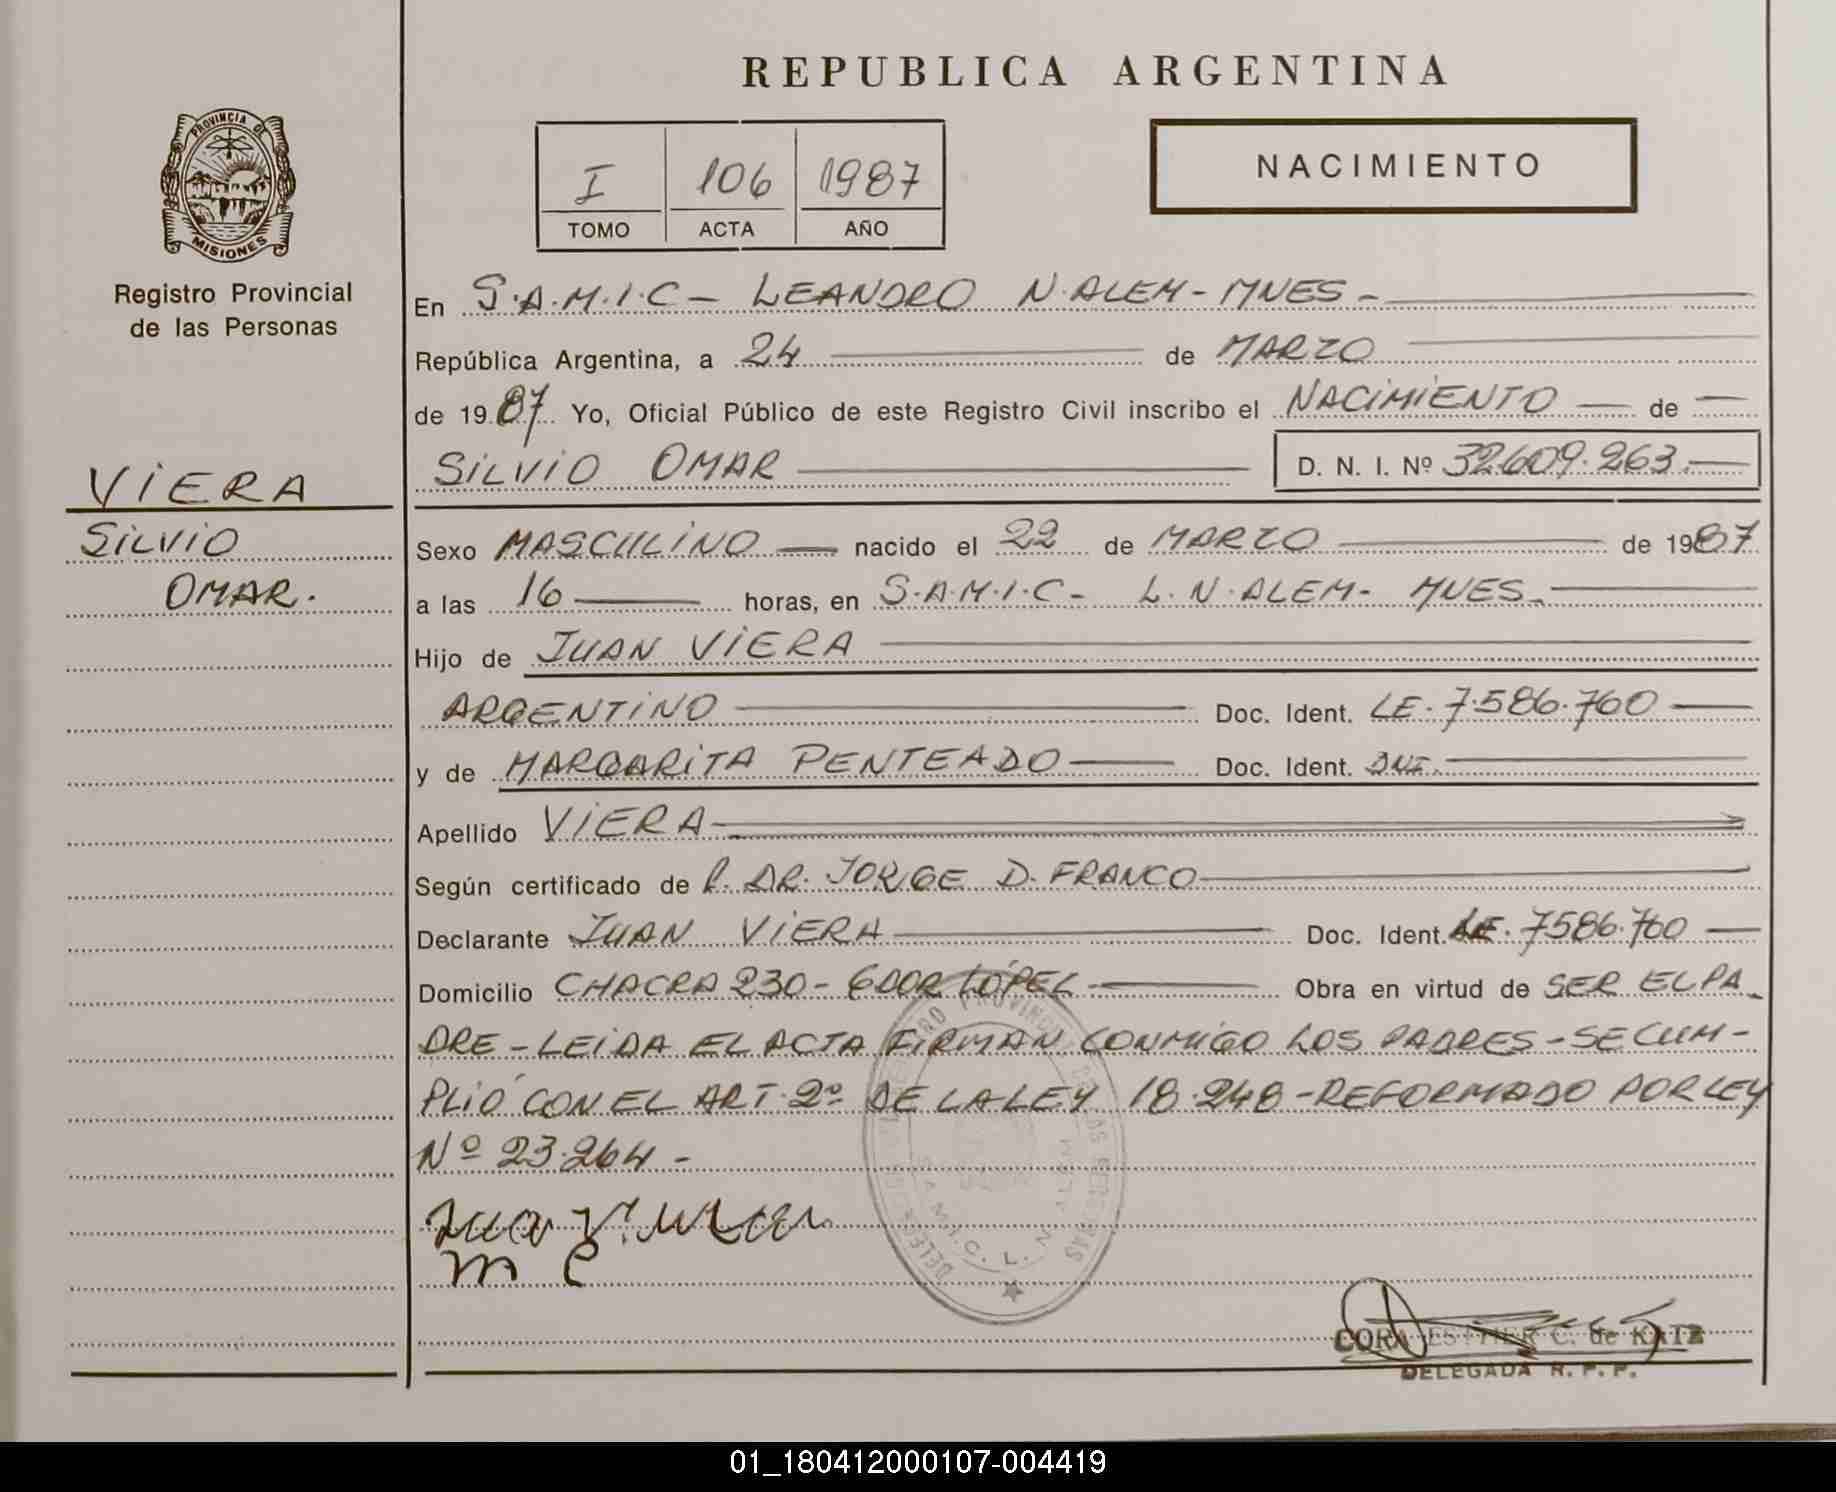 REPUBLICA ARGENTINA
PROVINCIA DE MISIONES
Registro Provincial
de las Personas
I 106 1987
TOMO ACTA AÑO
NACIMIENTO
En S.A.M.I.C - LEANDRO N. ALEM - MNES -
República Argentina, a 24 de MARZO
de 1987 Yo, Oficial Público de este Registro Civil inscribo el NACIMIENTO de
SILVIO OMAR D. N. I. Nº 32.609.263.
VIERA
SILVIO
OMAR.
Sexo MASCULINO nacido el 22 de MARZO de 1987
a las 16 horas, en S.A.M.I.C - L. N. ALEM - MNES.
Hijo de JUAN VIERA
ARGENTINO Doc. Ident. LE. 7.586.760
y de MARGARITA PENTEADO Doc. Ident. DNI.
Apellido VIERA
Según certificado de DR. JORGE D. FRANCO
Declarante JUAN VIERA Doc. Ident. LE. 7586.760
Domicilio CHACRA 230 - GDOR LÓPEZ Obra en virtud de SER EL PA
DRE - LEIDA EL ACTA FIRMAN CONMIGO LOS PADRES - SE CUM-
PLIÓ CON EL ART. 2º DE LA LEY 18.248 - REFORMADO POR LEY
Nº 23.264 -
M P
S.A.M.I.C. L. N. ALEM
CORA ESTHER C. de KATZ
DELEGADA R. P. P.
01_180412000107-004419